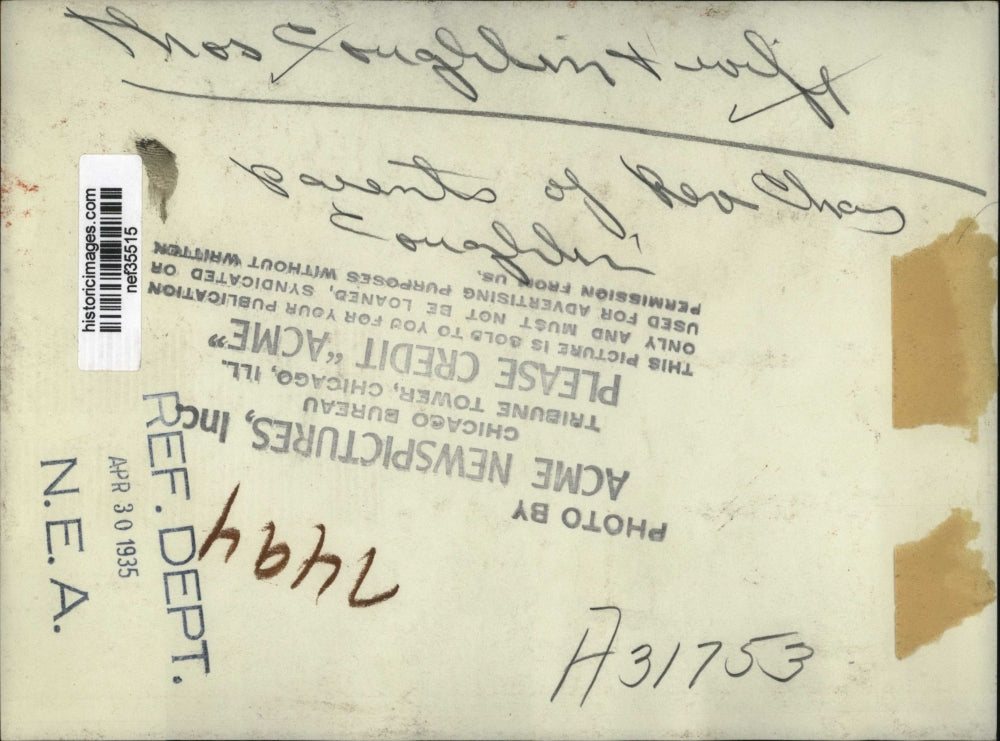 Thos Coughlin & wife
Parents of Rev Chas
Coughlin
historicimages.com
nef35515
PHOTO BY
ACME NEWSPICTURES, Inc.
CHICAGO BUREAU
TRIBUNE TOWER, CHICAGO, ILL.
PLEASE CREDIT "ACME"
THIS PICTURE IS SOLD TO YOU FOR YOUR PUBLICATION
ONLY AND MUST NOT BE LOANED, SYNDICATED OR
USED FOR ADVERTISING PURPOSES WITHOUT WRITTEN
PERMISSION FROM US.
REF. DEPT.
APR 30 1935
N.E.A.
7494
A31753